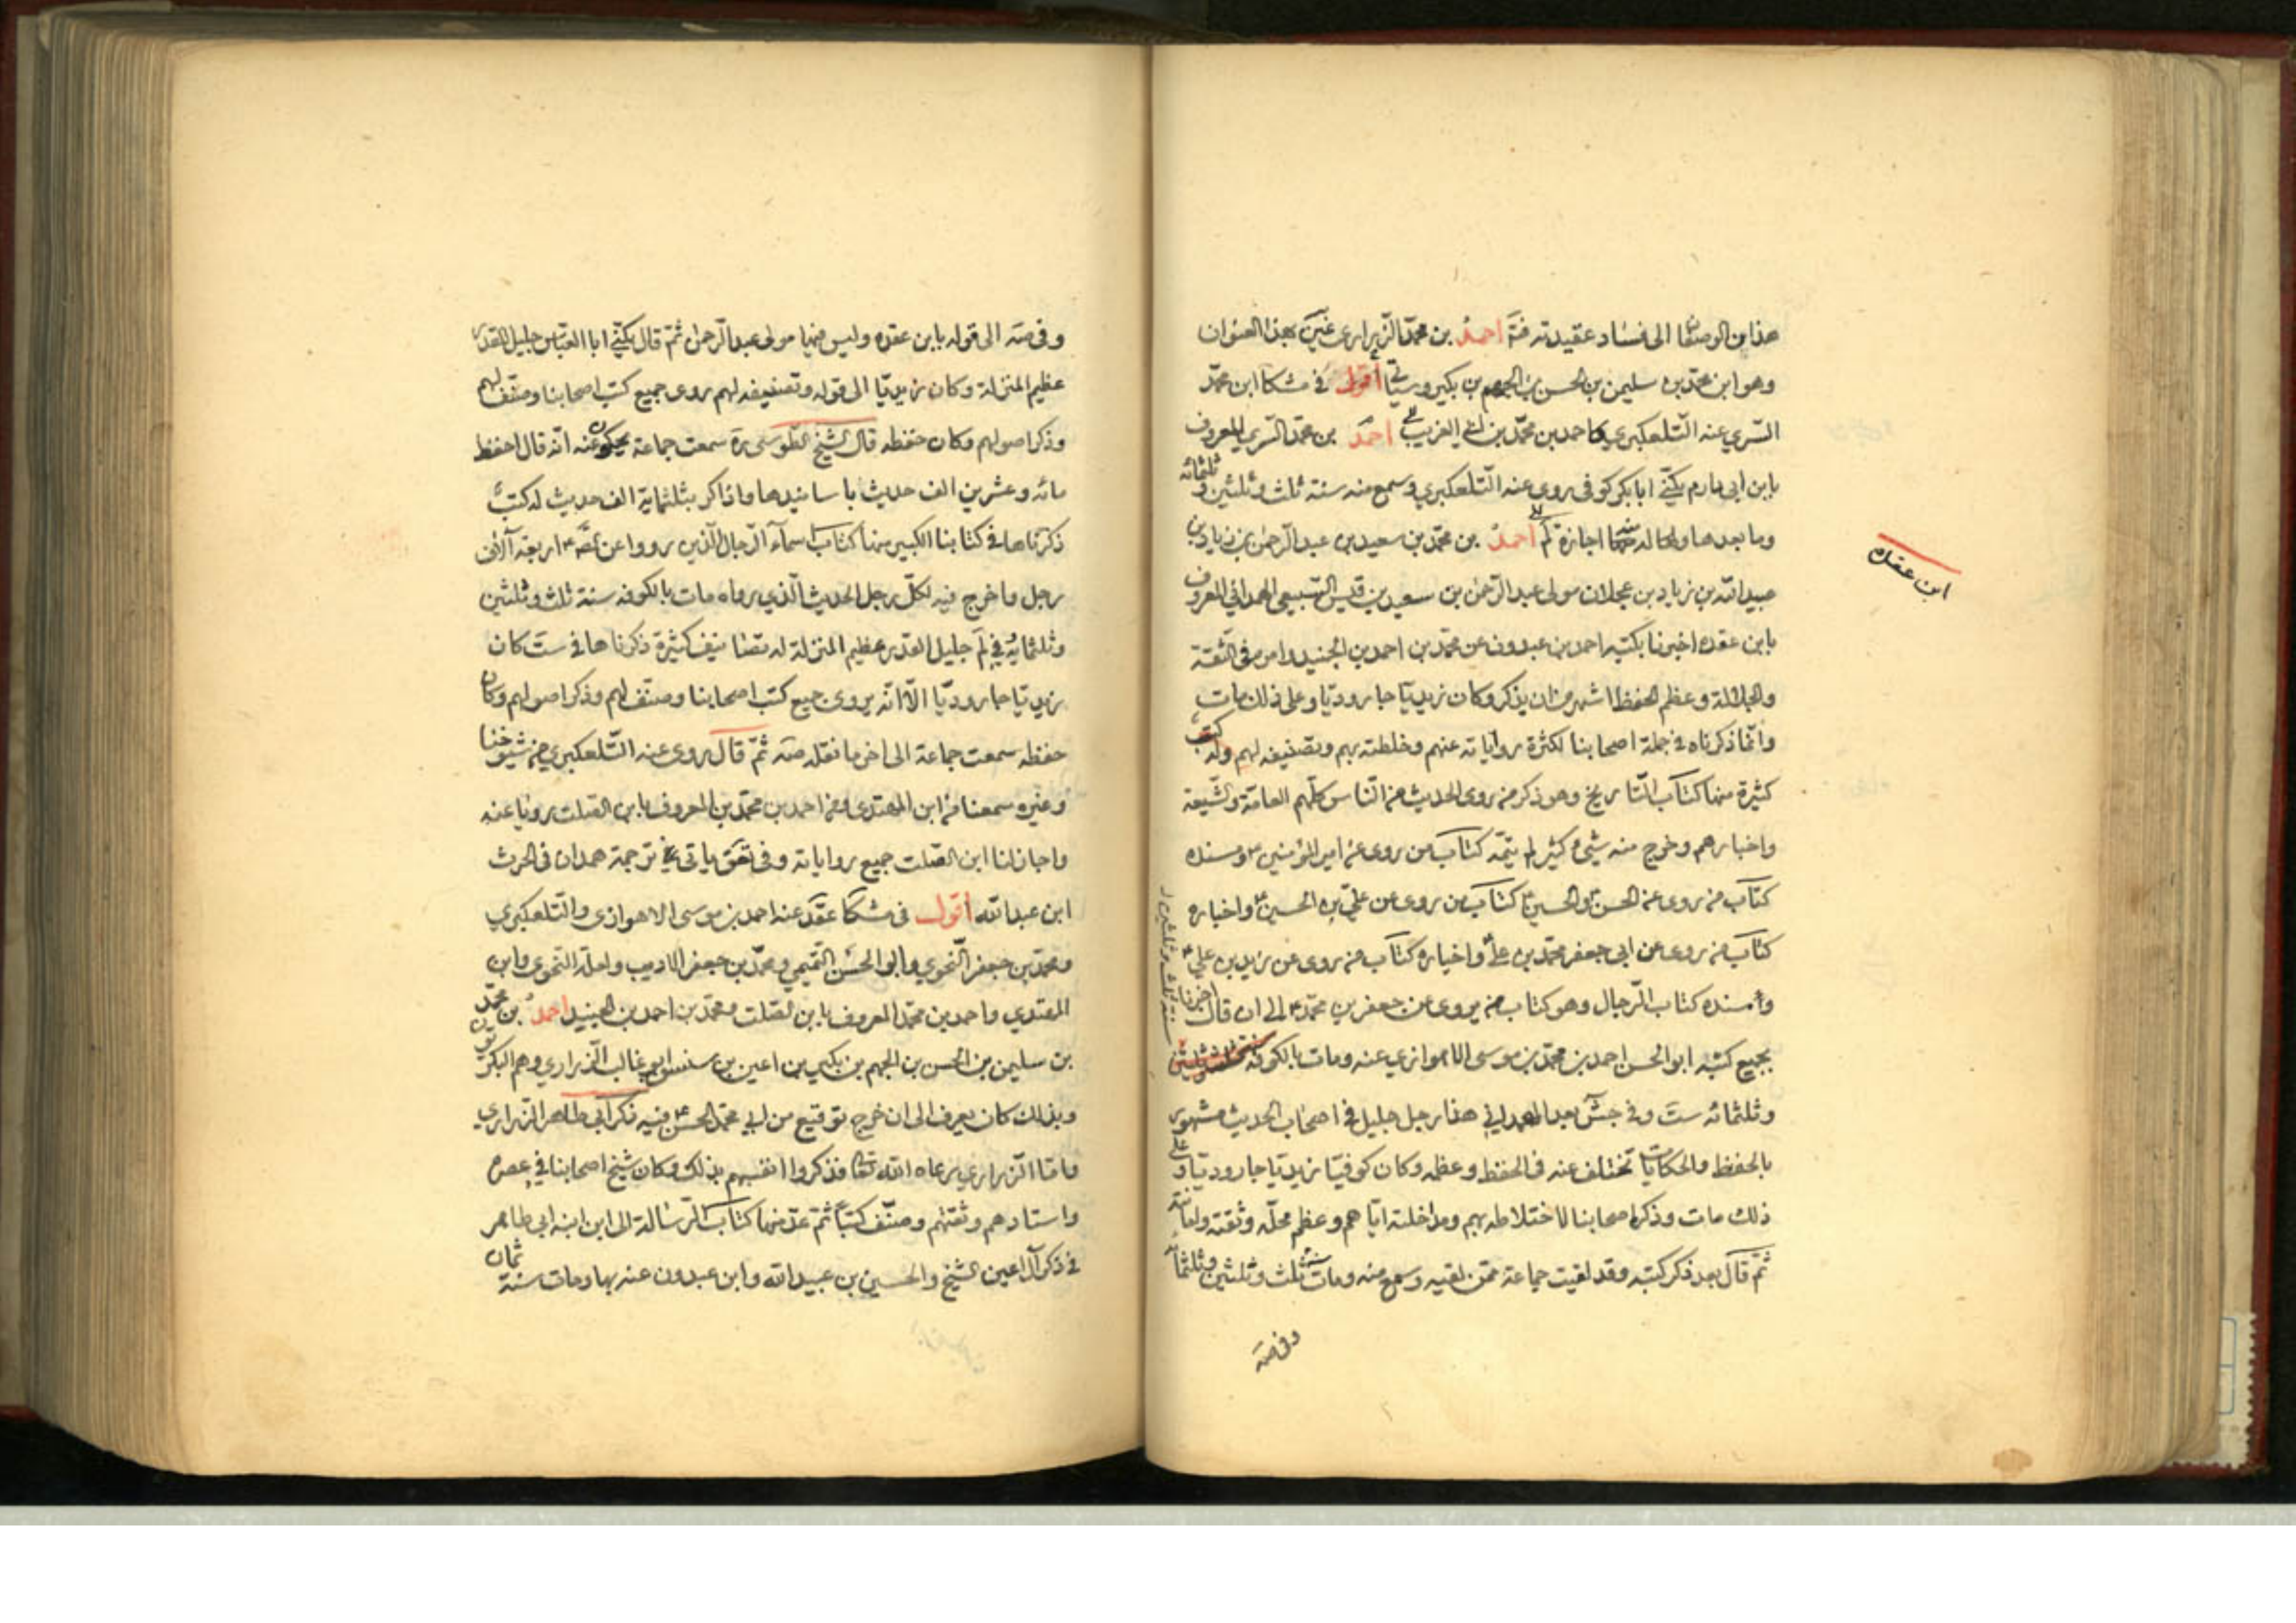 هذا من الوصف الى فساد عقيدته فتَ احمد بن محمد الزراري غير بهذا العنوان
وهو ابن محمد بن سليمن بن الحسن بن الجهم بن بكير وسياتي أقول في مشكا ابن محمد
السري عنه التلعكبري واحمد بن محمد بن ابي الغريب احمد بن محمد السري المعروف
بابن ابي دارم يكنّى ابا بكر كوفى روى عنه التلعكبري وسمع منه سنة ثلث وثلثين وثلثمائه
وما بعدها وله اجازة لم احمد بن محمد بن سعيد بن عبد الرحمن بن زياد بن
ابن عقده
عبيد الله بن زياد بن عجلان مولى عبد الرحمن بن سعيد بن قيس السبيعي الهمداني المعروف
بابن عقده اخبرنا بكتبه احمد بن عبدون عن محمد بن احمد بن الجنيد وامره فى الثقة
والجلالة وعظم الحفظ اشهر من ان يذكر وكان زيديّا جاروديّا وعلى ذلك مات
وانّما ذكرناه في جملة اصحابنا لكثرة رواياته عنهم وخلطته بهم وتصنيفه لهم وله كتب
كثيرة منها كتاب التاريخ وهو ذكر من روى الحديث من الناس كلّهم العامّة والشيعة
واخبارهم وخرج منه شيء كثير لم يتمّه كتاب من روى عن امير المؤمنين ع ومسنده
كتاب من روى عن الحسن والحسين ع كتاب من روى عن عليّ بن الحسين ع واخباره
كتاب من روى عن ابي جعفر محمد بن علي ع واخباره كتاب من روى عن زيد بن علي ع
ومسنده كتاب الرجال وهو كتاب من روى عن جعفر بن محمد ع الى ان قال اخبرنا
بجميع كتبه ابو الحسن احمد بن محمد بن موسى الاهوازي عنه ومات بالكوفة
سنة ثلث وثلثين
وثلثمائه ستَ وفي جشَ بعد الهمداني هذا رجل جليل في اصحاب الحديث مشهور
بالحفظ والحكايات تختلف عنه فى الحفظ وعظمه وكان كوفيّا زيديّا جاروديّا وعلى
ذلك مات وذكره اصحابنا لاختلاطه بهم ومداخلته ايّاهم وعظم محلّه وثقته وامانته
ثمّ قال بعد ذكر كتبه وقد لقيت جماعة ممّن لقيه وسمع منه ومات سنة ثلث وثلثين وثلثمائه
وفى صَه
وفى صَه الى قوله بابن عقده وليس فيها مولى عبد الرحمن ثمّ قال يكنّى ابا العبّاس جليل القدر
عظيم المنزلة وكان زيديّا الى قوله وتصنيفه لهم روى جميع كتب اصحابنا وصنّف لهم
وذكر اصولهم وكان حفظه قال الشيخ الطوسى ره سمعت جماعة يحكون عنه انّه قال احفظ
مائه وعشرين الف حديث باسانيدها واذاكر بثلثماية الف حديث له كتب
ذكرناها في كتابنا الكبير منها كتاب اسماء الرجال الذين رووا عن الصّ ع اربعة آلاف
رجل واخرج فيه لكلّ رجل الحديث الذي رواه مات بالكوفه سنة ثلث وثلثين
وثلثمائة وفي لَم جليل القدر عظيم المنزلة له تصانيف كثيرة ذكرناها في ستَ كان
زيديّا جاروديّا الّا انّه يروى جميع كتب اصحابنا وصنّف لهم وذكر اصولهم وكان
حفظه سمعت جماعة الى اخر ما نقله صَه ثمّ قال روى عنه التلعكبري من شيوخنا
وغيره سمعنا من ابن المهتدى ومن احمد بن محمد بن المعروف بابن الصلت رويا عنه
واجاز لنا ابن الصلت جميع رواياته وفي تعق ياتي في ترجمة همدان في الحرث
ابن عبد الله أقول فى مشكا عقدَ عنه احمد بن موسى الاهوازى والتلعكبري
ومحمد بن جعفر النحوي وابو الحسن التميمي ومحمد بن جعفر الاديب ولعله النحوى وابن
المهتدي واحمد بن محمد المعروف بابن الصلت ومحمد بن احمد بن الجنيد احمد بن محمد
بن سليمن بن الحسن بن الجهم بن بكير بن اعين بن سنسن ابو غالب الزراري وهم البكريون
وبذلك كان يعرف الى ان خرج توقيع من ابي محمد الحسن ع فيه ذكر ابي طاهر الزراري
فامّا الزراري رعاه الله تعا فذكروا انفسهم بذلك وكان شيخ اصحابنا في عصره
واستادهم وثقتهم وصنّف كتباً ثمّ عدّ منها كتاب الرسالة الى ابن ابنه ابي طاهر
في ذكر آل اعين الشيخ والحسين بن عبيد الله وابن عبدون عنه بها ومات سنة ثمان